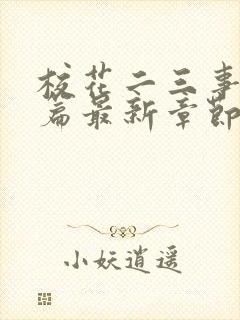 校花二三事
篇最新章節
小妖逍遥